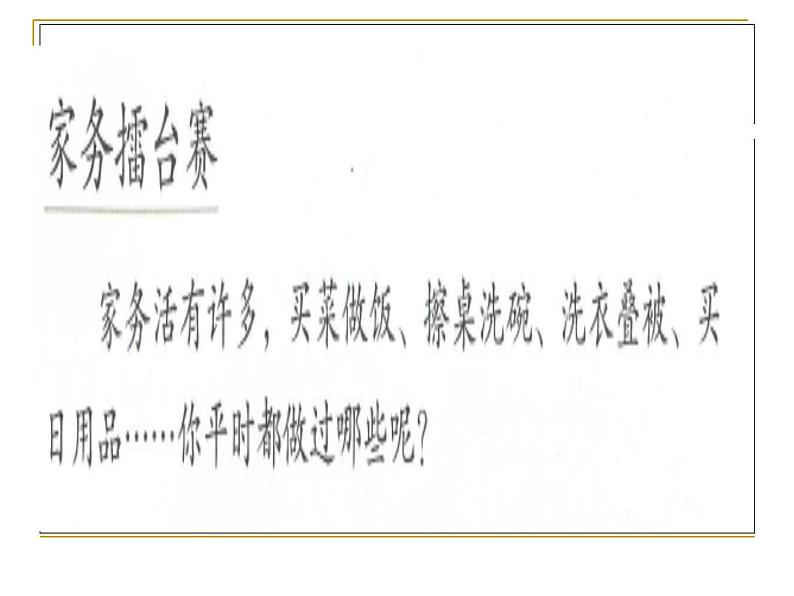 家务擂台赛
家务活有许多，买菜做饭、擦桌洗碗、洗衣叠被、买
日用品……你平时都做过哪些呢？